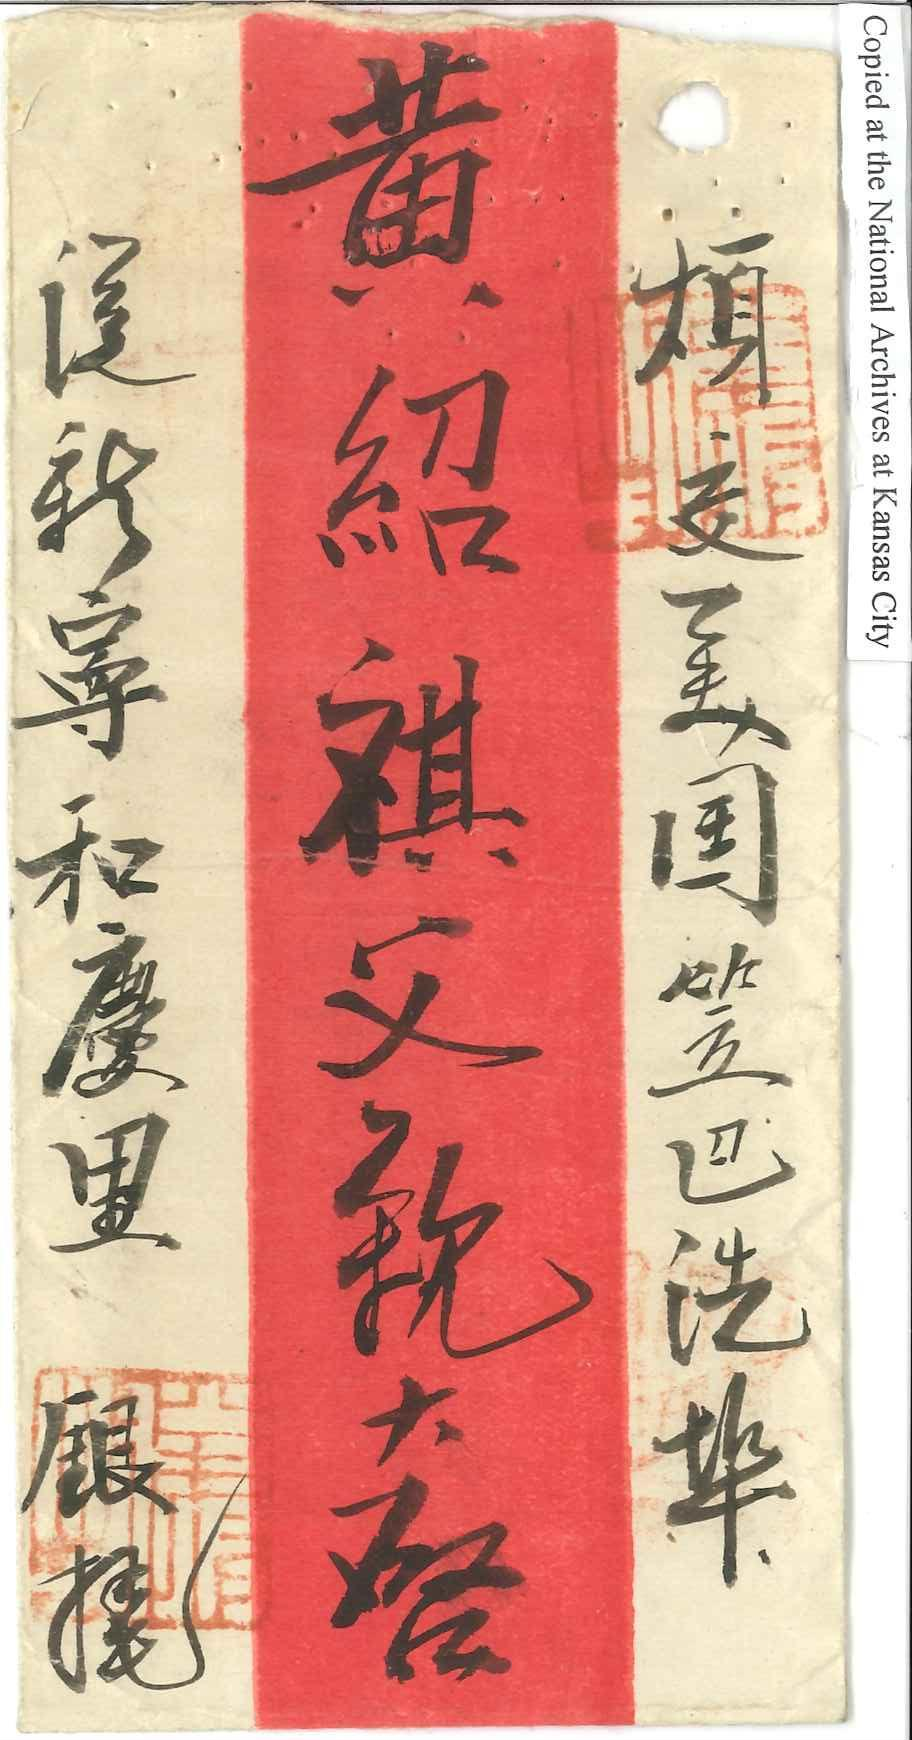 Copied at the National Archives at Kansas City
煩交美囯笠巴洗埠
黄紹祺父親大啓
從新寧和慶里